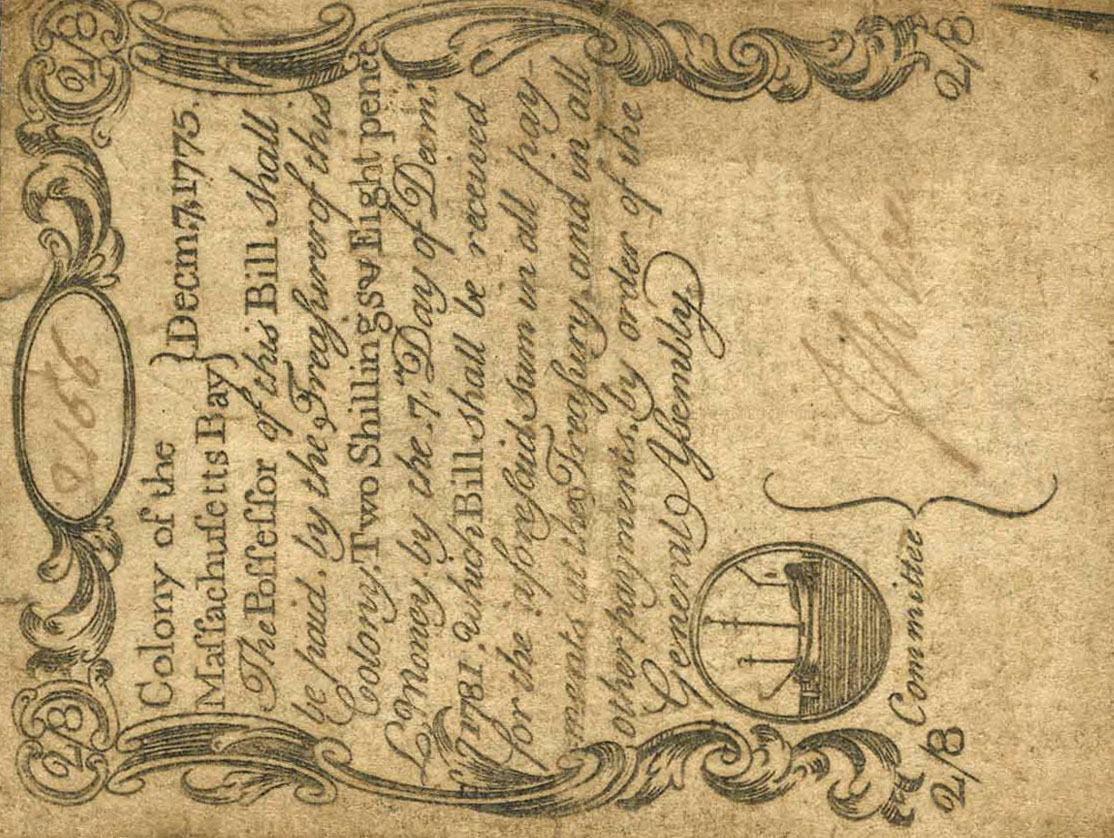 2/8 2/8
2156
Colony of the
Maſſachuſetts Bay } Decm. 7, 1775.
The Poſſeſſor of this Bill shall
be paid, by the Treaſurer of this
Colony, Two Shillings & Eight pence
L. Money by the 7. Day of Decm.
1781. which Bill shall be received
for the aforeſaid sum in all pay-
ments at the Treaſury, and in all
other payments, by order of the
General Aſsembly.
Committee
2/8 2/8